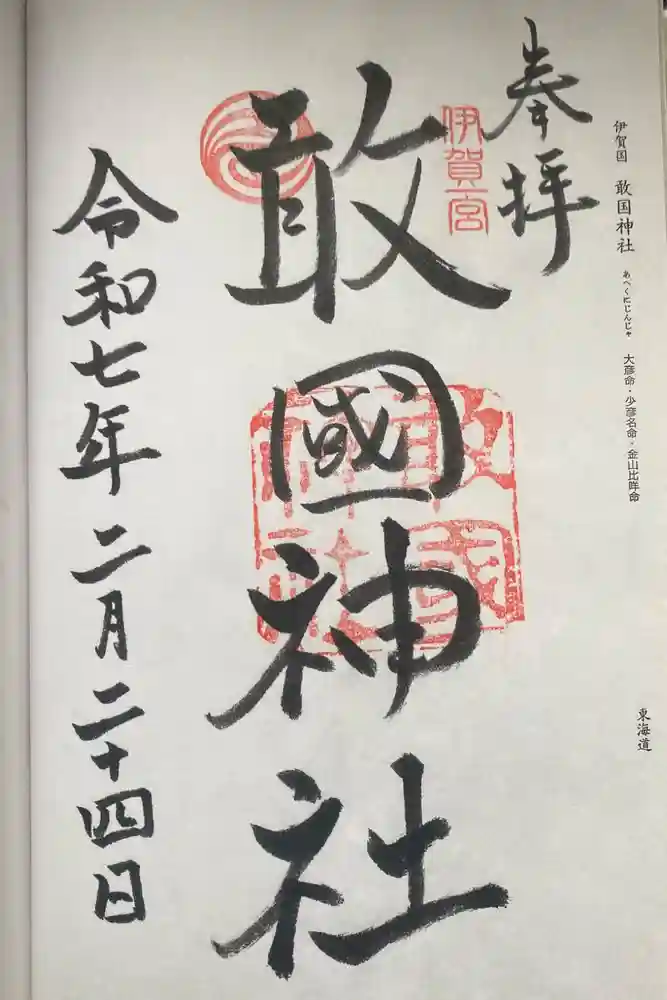 伊賀国 敢国神社 あへくにじんじゃ 大彦命・少彦名命・金山比咩命
東海道
奉拝
伊賀一宮
敢國神社
敢國神社
令和七年二月二十四日